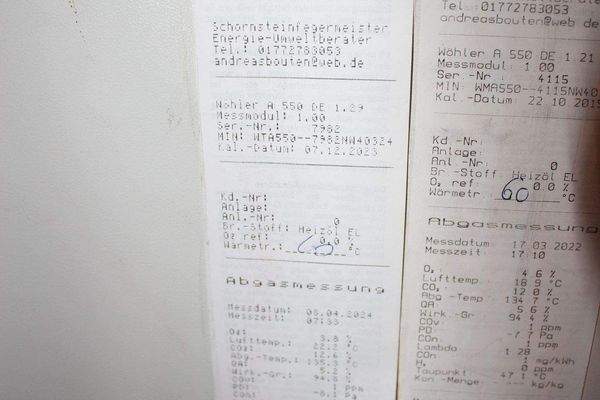 Schornsteinfegermeister
Energie-Umweltberater
Tel.: 01772783053
andreasbouten@web.de
Wöhler A 550 DE 1.29
Messmodul: 1.00
Ser.-Nr.: 7982
MIN: WTA550--7982NW40324
Kal.-Datum: 07.12.2023
Kd.-Nr:
Anlage:
Anl.-Nr: 0
Br.-Stoff: Heizöl EL
O₂ ref: 0,0 %
Wärmetr.: 60 °C
Abgasmessung
Messdatum: 08.04.2024
Messzeit: 07:33
O₂: 3.8 %
Lufttemp.: 22.2 °C
CO₂: 12.6 %
Abg.-Temp.: 135.3 °C
QA: 5.2 %
Wirk.-Gr.: 94.8 %
COv: 1 ppm
PD: -8.1 Pa
Tel.: 01772783053
andreasbouten@web de
Wöhler A 550 DE 1.21
Messmodul 1 00
Ser -Nr 4115
MIN: WMA550--4115NW40
Kal -Datum 22 10 201
Kd.-Nr:
Anlage:
Anl -Nr 0
Br -Stoff Heizöl EL
O₂ ref: 0 0 %
Wärmetr 60 °C
Abgasmessung
Messdatum 17 03 2022
Messzeit: 17 10
O₂ 4 6 %
Lufttemp 18 9 °C
CO₂ 12 0 %
Abg -Temp 134 7 °C
QA: 5 6 %
Wirk -Gr 94 4 %
COv 1 ppm
PD -7 7 Pa
COn 1 ppm
Lambda 1 28
COn 1 mg/kWh
H₂ 0 ppm
Taupunkt 47 1 °C
Kon -Menge -.-- kg/kg